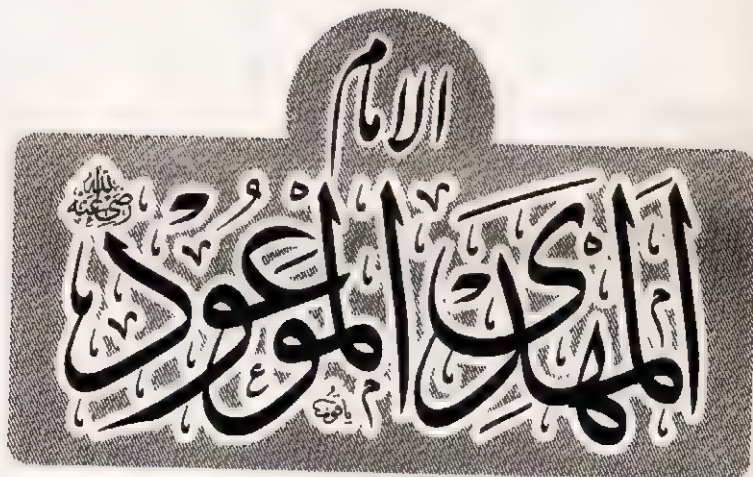 الامام
المهدى الموعود
رضی اللہ عنہ
یاقوت